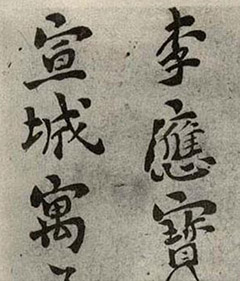 李應寶
宣城寓